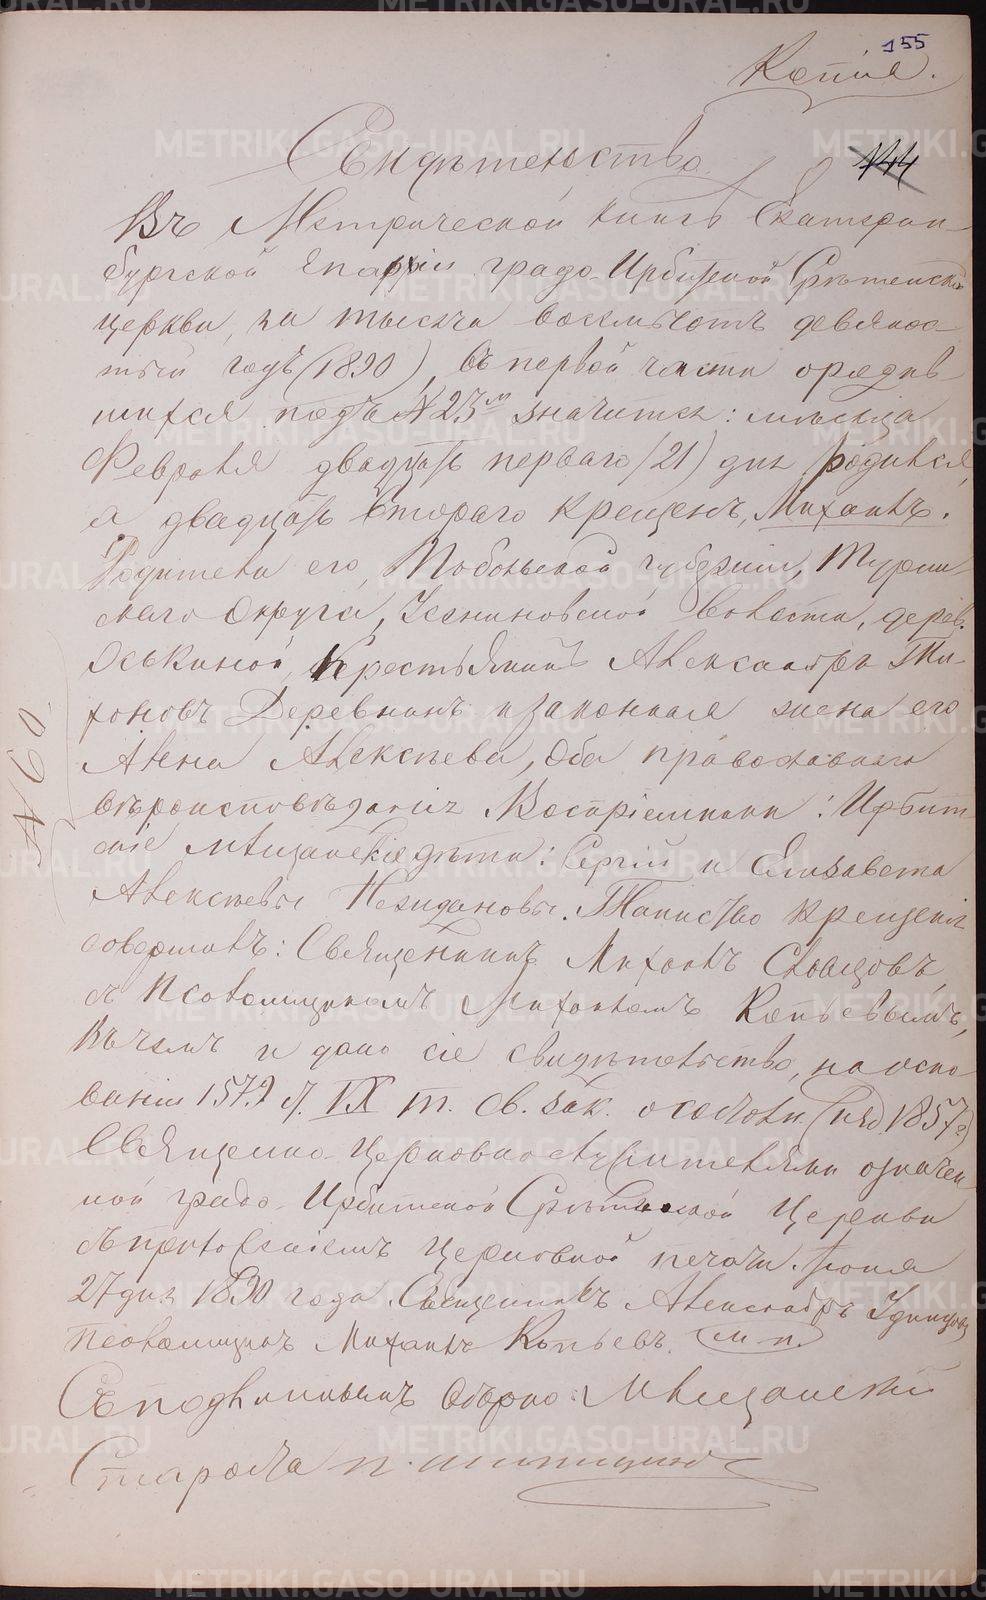 155
Копія.
Свидѣтельство
144
Въ Метрической книгѣ Екатерин-
бургской Епархіи градо-Ирбитской Срѣтенской
церкви, за тысяча восемьсотъ девянос-
тый годъ (1890), въ первой части о родив-
шихся подъ № 23м значится: мѣсяца
Февраля двадцать перваго (21) дня родился,
а двадцать втораго крещенъ, Михаилъ.
Родители его, Тобольской губерніи, Турин-
скаго Округа, Усениновской волости, дерев.
Оськиной, Крестьянинъ Александръ Ти-
хоновъ Деревнинъ и законная жена его
Анна Алексѣева, Оба православнаго
вѣроисповѣданія Воспріемники: Ирбит-
скіе мѣщанскіе дѣти: Сергій и Елизавета
Алексѣевы Незидановы. Таинство крещенія
совершилъ: Священникъ Михаилъ Словцовъ,
съ Псаломщикомъ Михаиломъ Копьевымъ,
Въ чемъ и дано сіе свидѣтельство, на осно-
ваніи 1579 ст. IX т. св. зак. о состоян. (изд. 1857 г.)
Священно-Церковнослужителями означен-
ной градо-Ирбитской Срѣтенской Церкви
съ приложеніемъ церковной печати. Іюня
27 дня 1890 года. Священникъ Александръ Удинцовъ
Псаломщикъ Михаилъ Копьевъ. М.П.
Съ подлиннымъ вѣрно: Мѣщанскій
Староста П.
№ 60.
METRIKI.GASO-URAL.RU